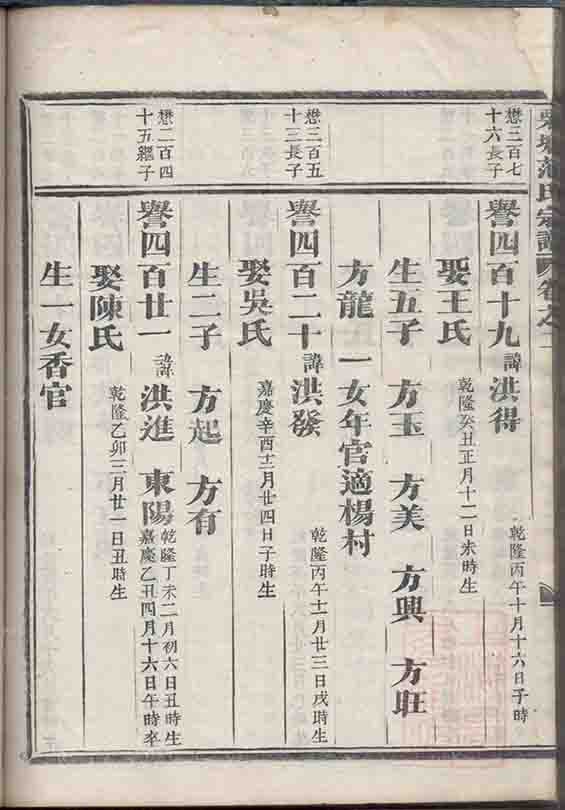 范氏宗譜 卷之二
懋三百七
十六長子
譽四百十九 諱洪得 乾隆丙午十月十六日子時
娶王氏 乾隆癸丑正月十二日未時生
生五子 方玉 方美 方興 方旺
方龍 一女年官適楊村
懋三百五
十三長子
譽四百二十 諱洪發 乾隆丙午十一月廿三日戌時生
娶吳氏 嘉慶辛酉十二月廿四日子時生
生二子 方起 方有
懋二百四
十五繼子
譽四百廿一 諱洪進 東陽 乾隆丁未二月初六日丑時生
嘉慶乙丑四月十六日午時卒
娶陳氏 乾隆乙卯三月廿一日丑時生
生一女香官